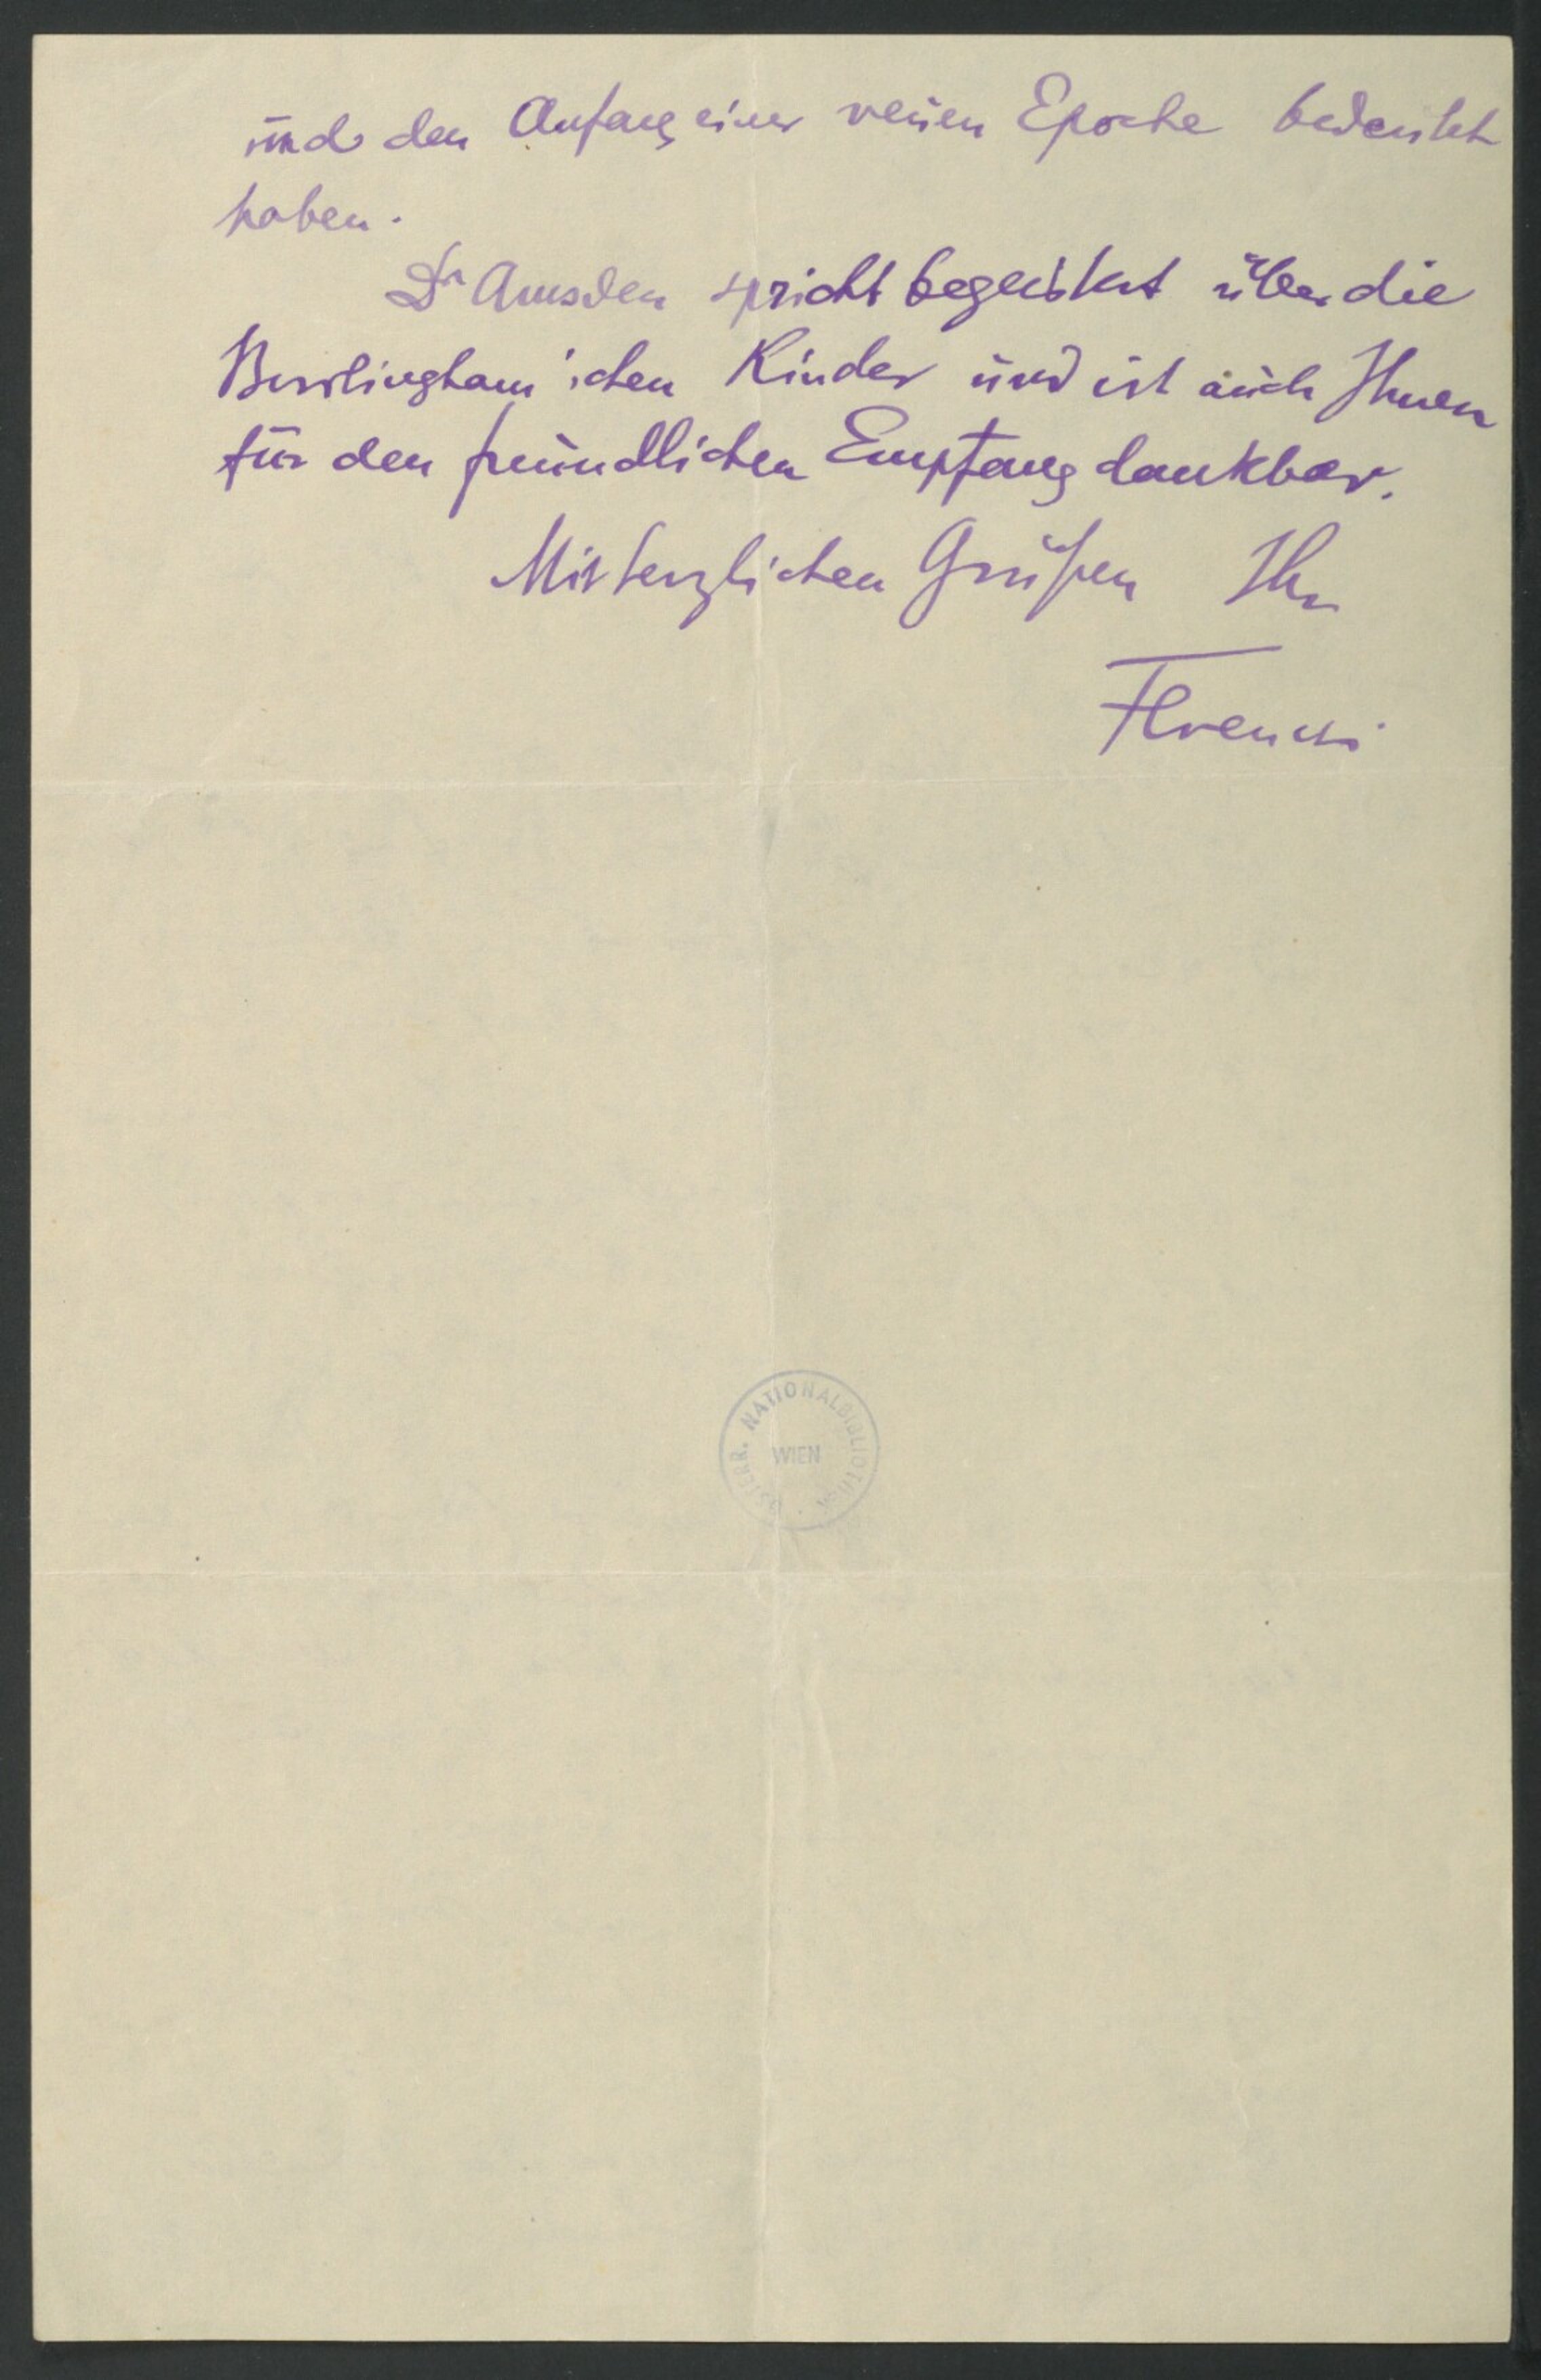 und den Anfang einer neuen Epoche bedeutet
haben.
Dr Amsden spricht begeistert über die
Burlingham'schen Kinder und ist auch Ihnen
für den freundlichen Empfang dankbar.
Mit herzlichen Grüßen Ihr
Ferenczi
ÖSTERR. NATIONALBIBLIOTHEK
WIEN